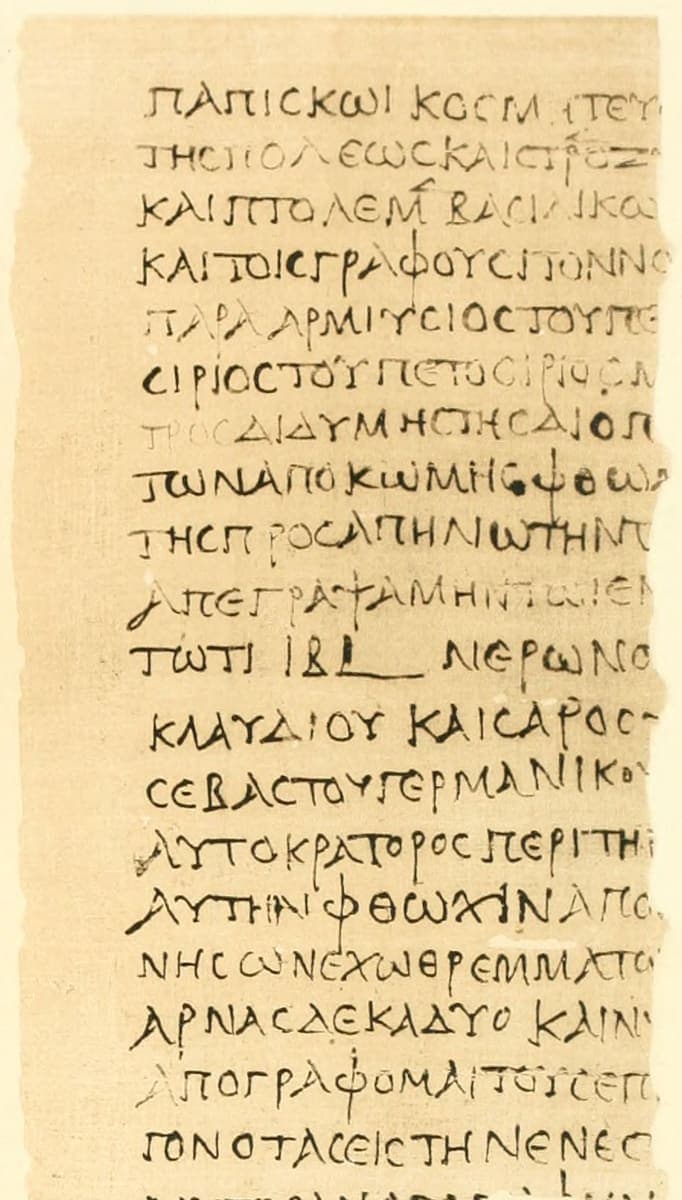 ΠΑΠΙϹΚωΙ ΚΟϹΜ ΤΕΥ
ΤΗϹΠΟΛΕωϹΚΑΙϹΤΡ
ΚΑΙΠΤΟΛΕΜ ΒΑϹΙΛΙΚω
ΚΑΙΤΟΙϹΓΡΑΦΟΥϹΙΤΟΝΝΟ
ΠΑΡΑ ΑΡΜΙΥϹΙΟϹΤΟΥΠΕ
ϹΙΡΙΟϹΤΟΥΠΕΤΟϹΙΡΙΟϹΜ
ΤΡΟϹΔΙΔΥΜΗϹΤΗϹΔΙΟΠ
ΤωΝΑΠΟΚωΜΗϹΦΘωΧ
ΤΗϹΠΡΟϹΑΠΗΛΙωΤΗΝΤ
ΑΠΕΓΡΑΨΑΜΗΝΤωΙΕΝ
ΤωΤΙ ΙΒL ΝΕΡωΝΟ
ΚΛΑΥΔΙΟΥ ΚΑΙϹΑΡΟϹ
ϹΕΒΑϹΤΟΥΓΕΡΜΑΝΙΚΟΥ
ΑΥΤΟΚΡΑΤΟΡΟϹΠΕΡΙΤΗ
ΑΥΤΗΝΦΘωΧΙΝ ΑΠΟ
ΝΗϹωΝΕΧωΘΡΕΜΜΑΤω
ΑΡΝΑϹΔΕΚΑΔΥΟ ΚΑΙΝ
ΑΠΟΓΡΑΦΟΜΑΙΤΟΥϹΕΠ
ΓΟΝΟΤΑϹΕΙϹΤΗΝΕΝΕϹ